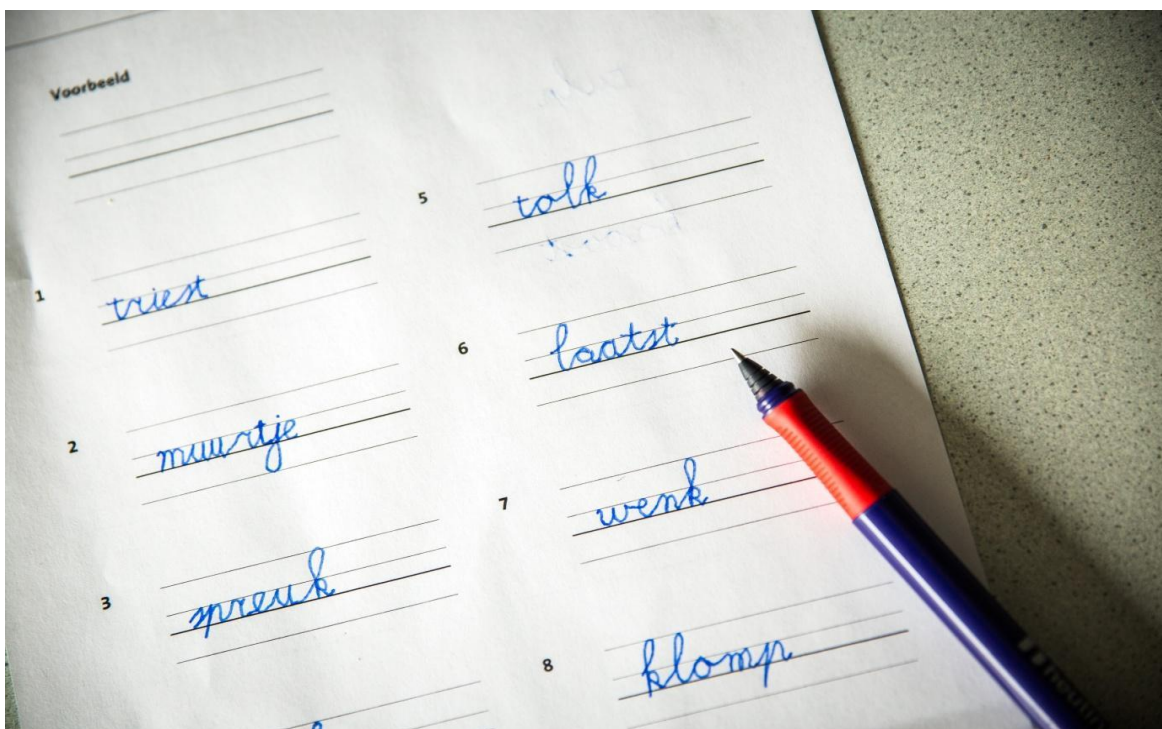 Voorbeeld
1 triest
2 muurtje
3 spreuk
5 tolk
6 laatst
7 wenk
8 klomp